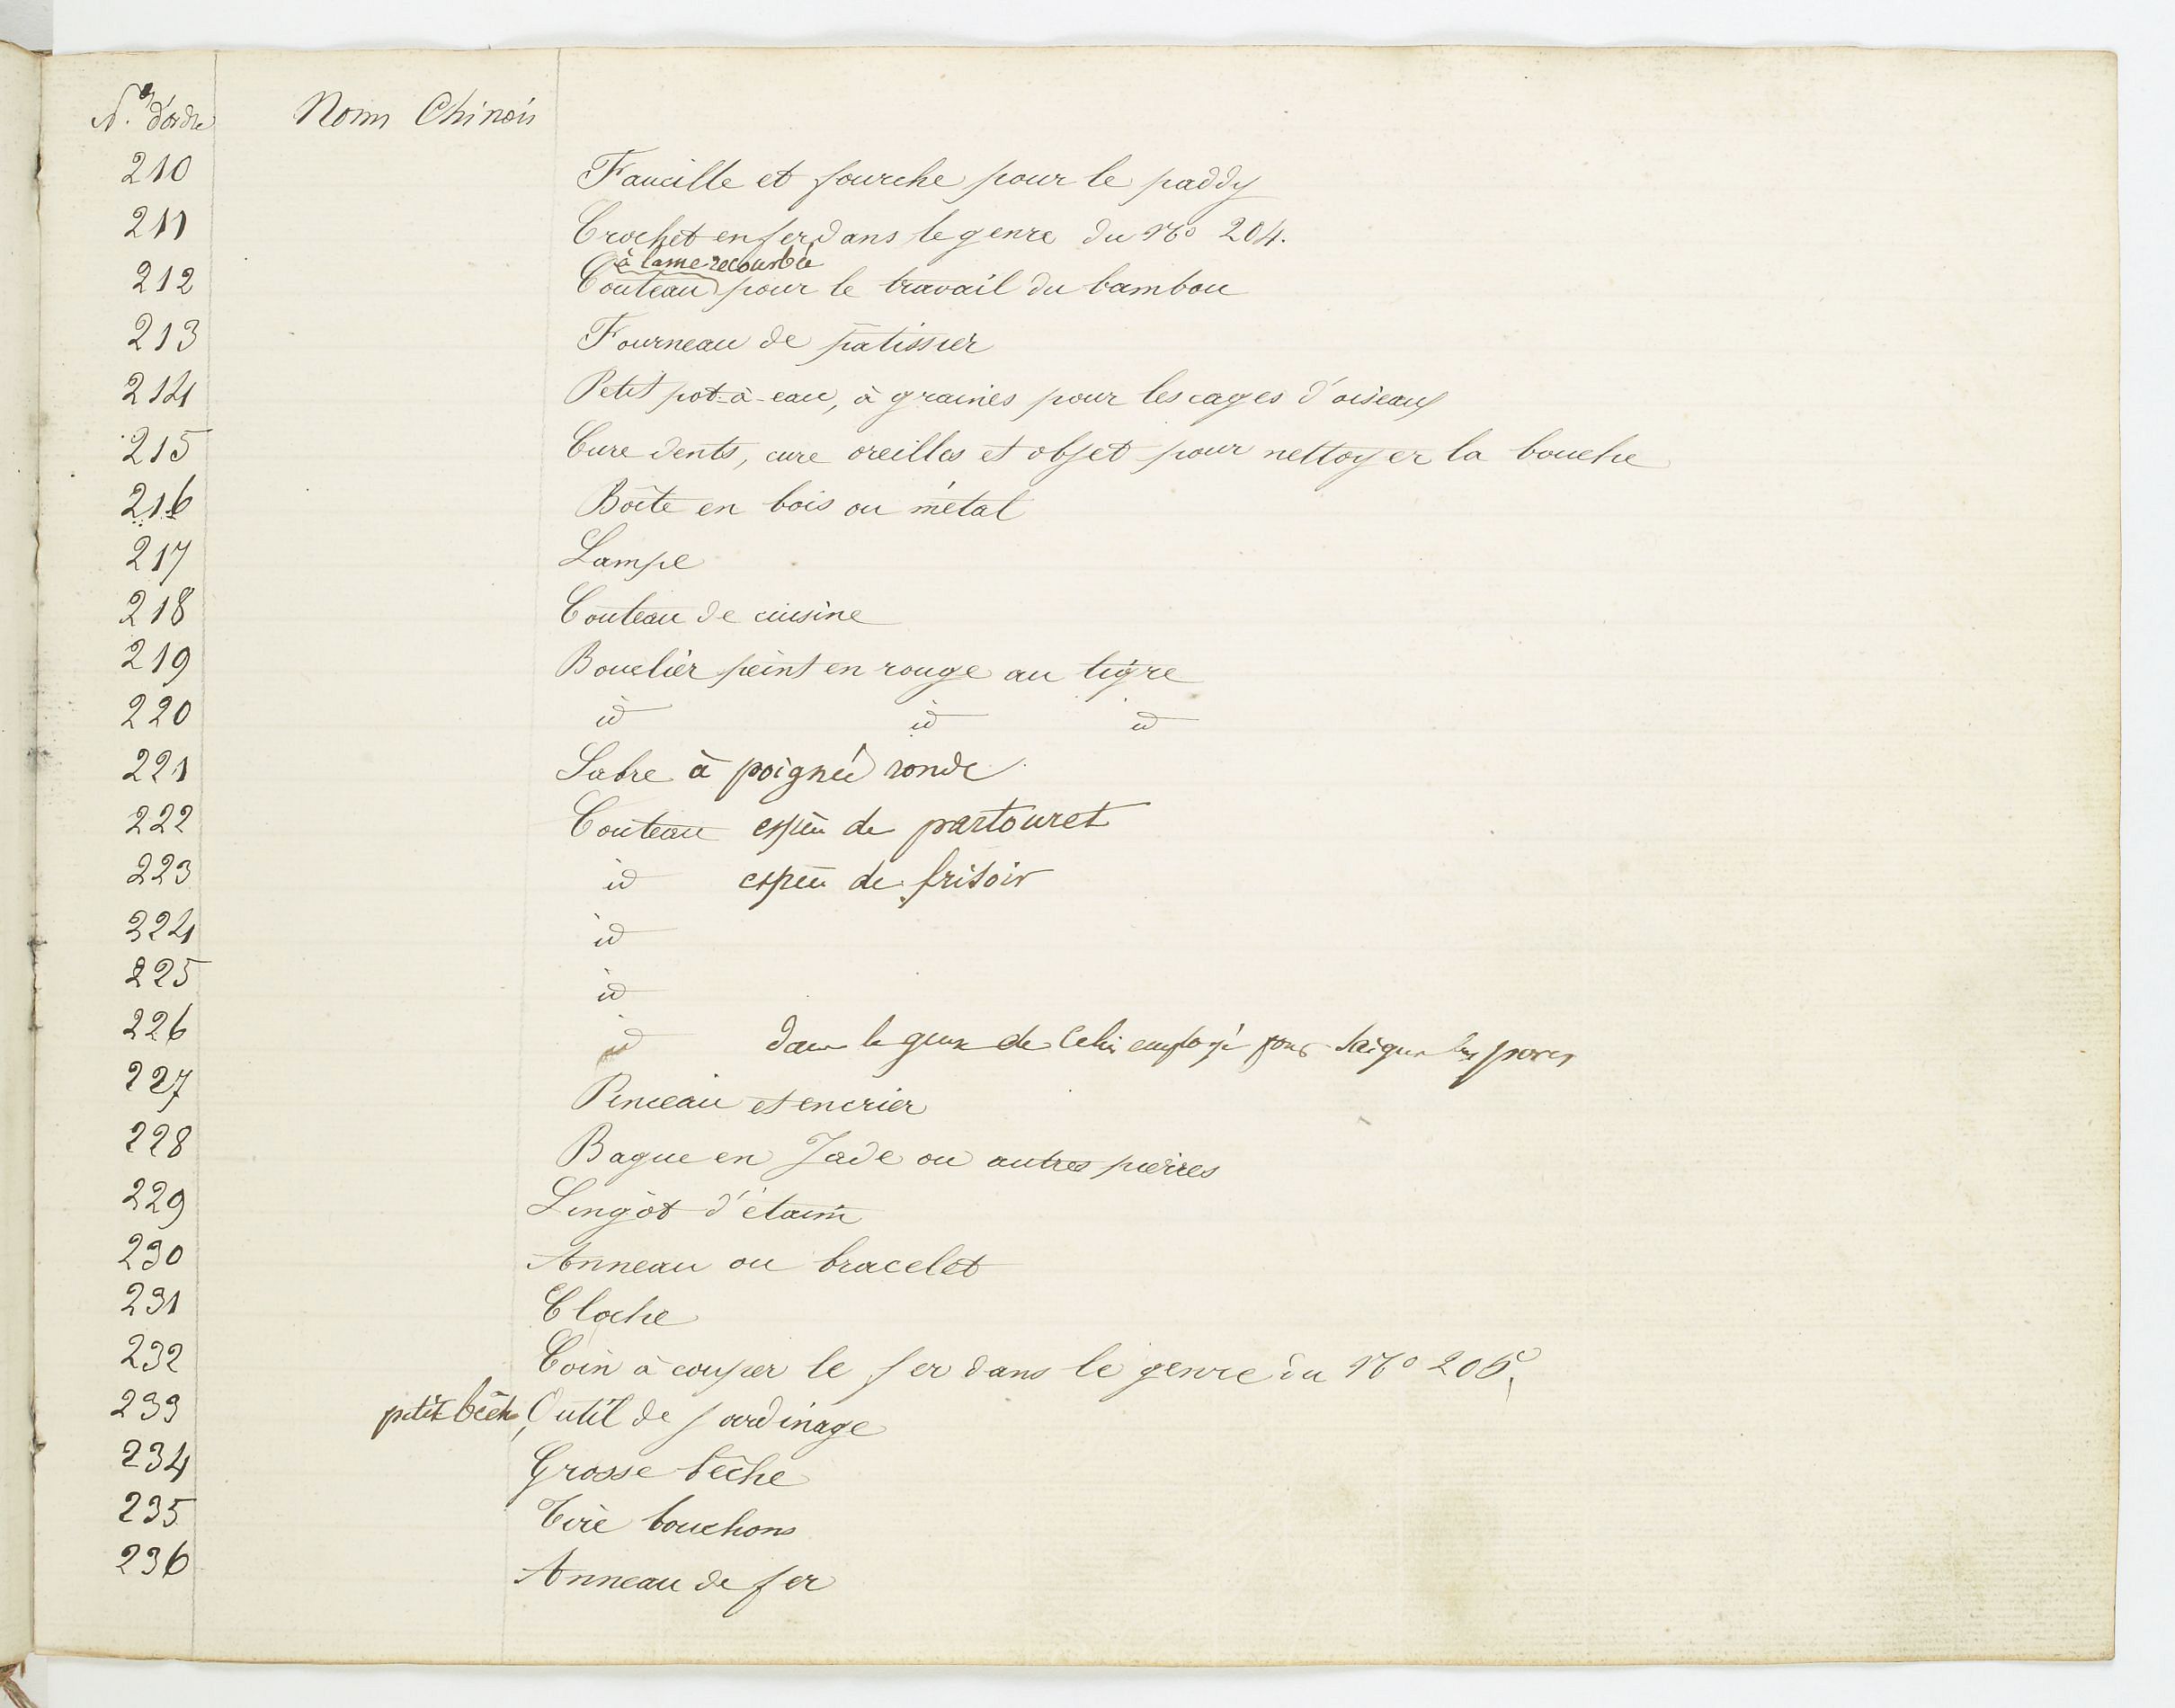 Nos d'ordre Nom Chinois
210 Faucille et fourche pour le paddy
211 Crochet en fer dans le genre du No 204.
à lame recourbée
212 Couteau pour le travail du bambou
213 Fourneau de patissier
214 Petit pot-à-eau, à graines pour les cages d'oiseaux
215 Cure dents, cure oreilles et objet pour nettoyer la bouche
216 Boîte en bois ou métal
217 Lampe
218 Couteau de cuisine
219 Bouclier peint en rouge au tigre
220 id id id
221 Sabre à poignée ronde
222 Couteau espèce de partouret
223 id espèce de frisoir
224 id
225 id
226 id dans le genre de celui employé pour saigner les porcs
227 Pinceau et encrier
228 Bague en Jade ou autres pierres
229 Lingot d'étaim
230 Anneau ou bracelet
231 Cloche
232 Coin à couper le fer dans le genre du No 205.
233 petite bêche, Outil de jardinage
234 Grosse bêche
235 Tire bouchons
236 Anneau de fer